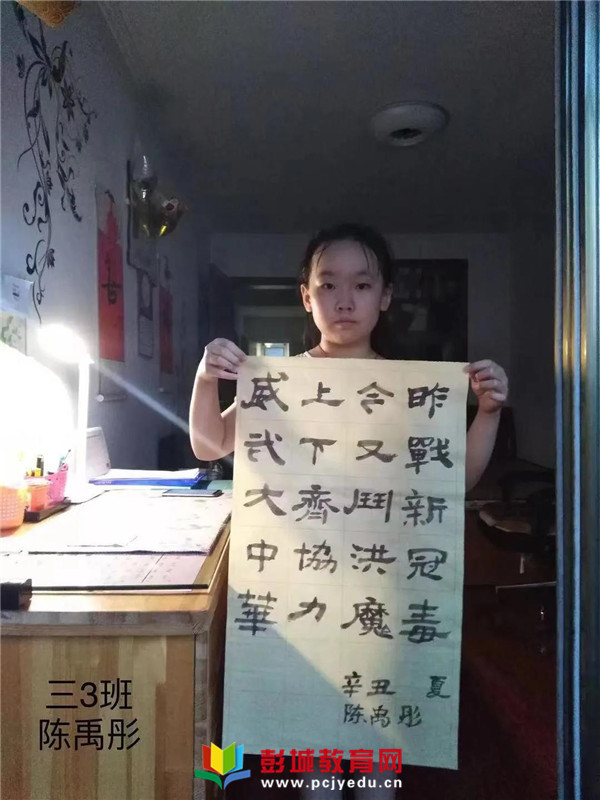 昨戰新冠毒
今又鬥洪魔
上下齊協力
威武大中華
辛丑 夏
陈禹彤
三3班
陈禹彤
彭城教育网
www.pcjyedu.cn